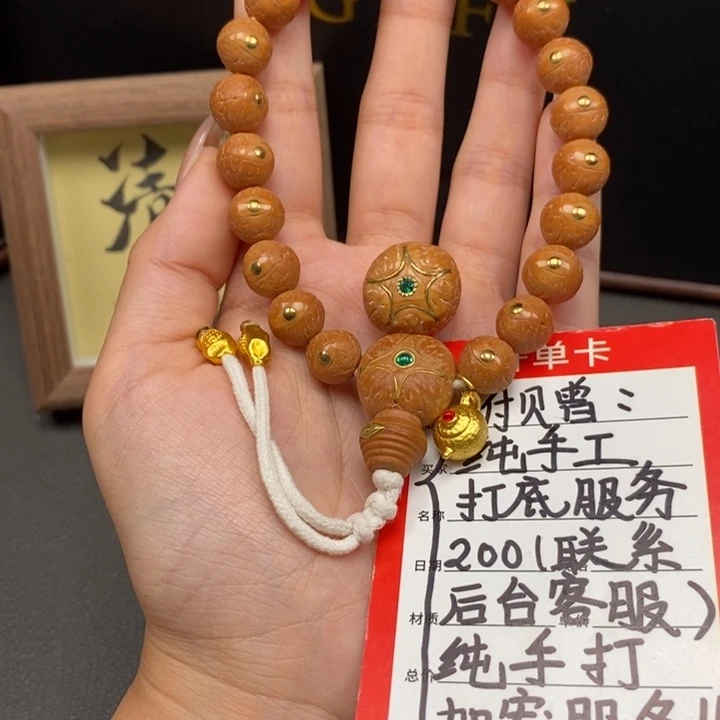 单卡
付贝曾：
买家 纯手工
名称 打底服务
日期 200(联系
材质 后台客服)
总个 纯手打